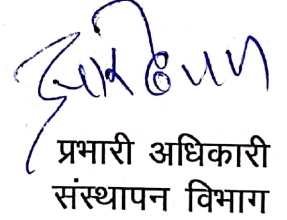 प्रभारी अधिकारी
संस्थापन विभाग